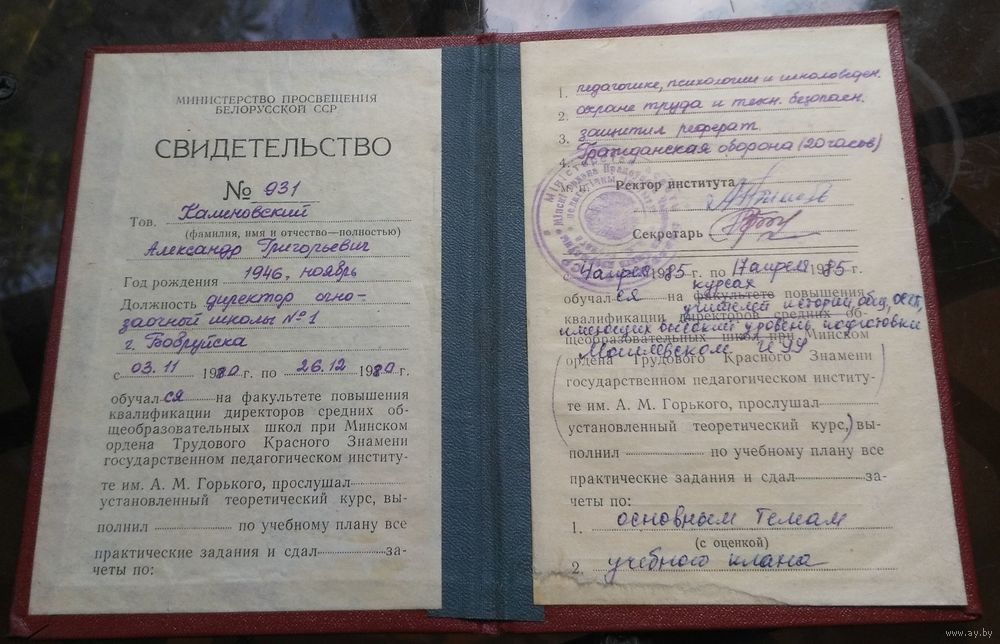 МИНИСТЕРСТВО ПРОСВЕЩЕНИЯ
БЕЛОРУССКОЙ ССР
СВИДЕТЕЛЬСТВО
№ 931
Тов. Калиновский
(фамилия, имя и отчество—полностью)
Александр Григорьевич
Год рождения 1946, ноябрь
Должность директор очно-
заочной школы №1
г. Бобруйска
с 03.11 1980 г. по 26.12 1980 г.
обучался на факультете повышения
квалификации директоров средних об-
щеобразовательных школ при Минском
ордена Трудового Красного Знамени
государственном педагогическом институ-
те им. А. М. Горького, прослушал
установленный теоретический курс, вы-
полнил по учебному плану все
практические задания и сдал за-
четы по:
1. педагогике, психологии и школоведен.
2. охране труда и техн. безопасн.
3. защитил реферат.
4. Гражданская оборона (20 часов)
М. п. Ректор института
Секретарь
с 4 апреля 1985 г. по 17 апреля 1985 г.
курсах
обучался на факультете повышения
учителей истории, общ.,
квалификации директоров средних об-
имеющих высокий уровень подготовки
щеобразовательных школ при Минском
Могилевском ИУУ
ордена Трудового Красного Знамени
государственном педагогическом институ-
те им. А. М. Горького, прослушал
установленный теоретический курс, вы-
полнил по учебному плану все
практические задания и сдал за-
четы по:
1. основным темам
(с оценкой)
2. учебного плана
www.ay.by